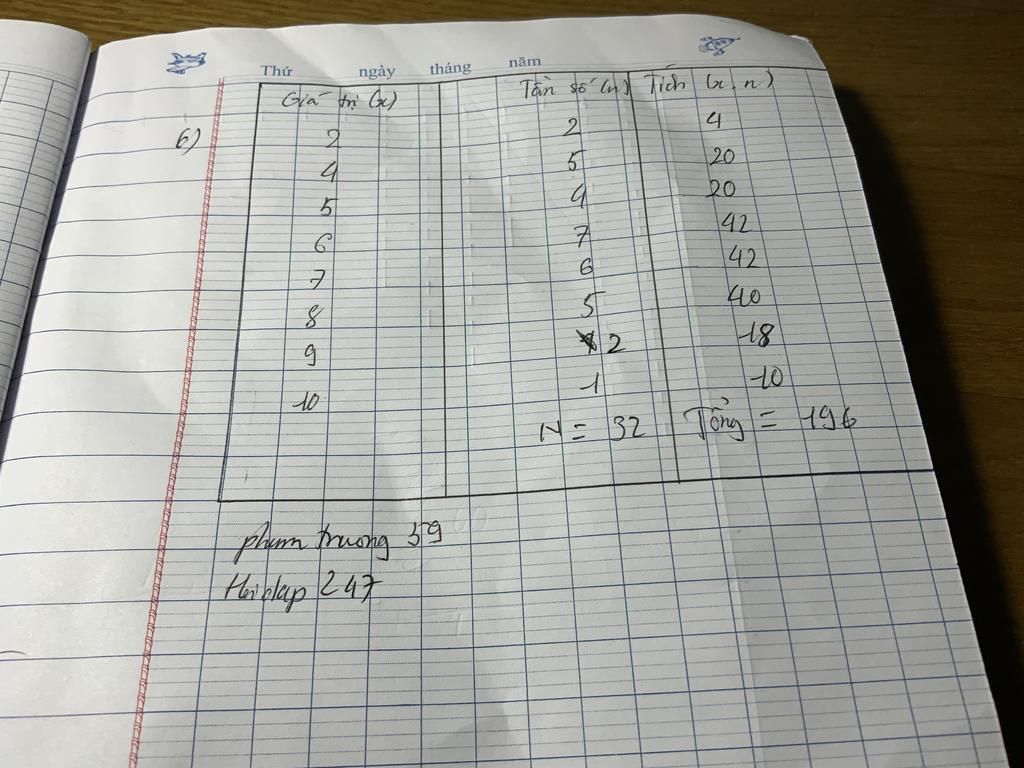 Thứ ngày tháng năm
Giá trị (x) Tần số (n) Tích (x.n)
6) 2 2 4
4 5 20
5 4 20
6 7 42
7 6 42
8 5 40
9 2 18
10 1 10
N = 32 Tổng = 196
phum truong 59
Hi clap 247